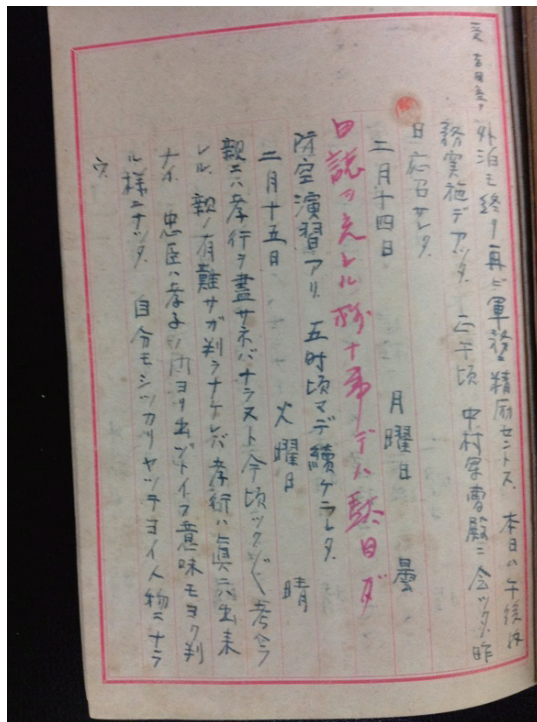 外泊モ終リ再ビ軍務ニ精励セントス、本日ハ午後内
務実施デアッタ、正午頃 中村軍曹殿ニ会ッタ、昨
日応召サレタ、
二月十四日 月曜日 曇
日誌ヲ忘レル様十事デハ駄目ダ
防空演習アリ、五時頃マデ續ケラレタ、
二月十五日 火曜日 晴
親ニハ孝行ヲ盡サネバナラヌト今頃ツクヅク考ヘラ
レル、親ノ有難サガ判ラナケレバ孝行ハ眞ニハ出来
ナイ、忠臣ハ孝子ノ門ヨリ出ヅトイフ意味モヨク判
ル様ニナッタ、自分モシッカリヤッテヨイ人物ニナラ
ウ、